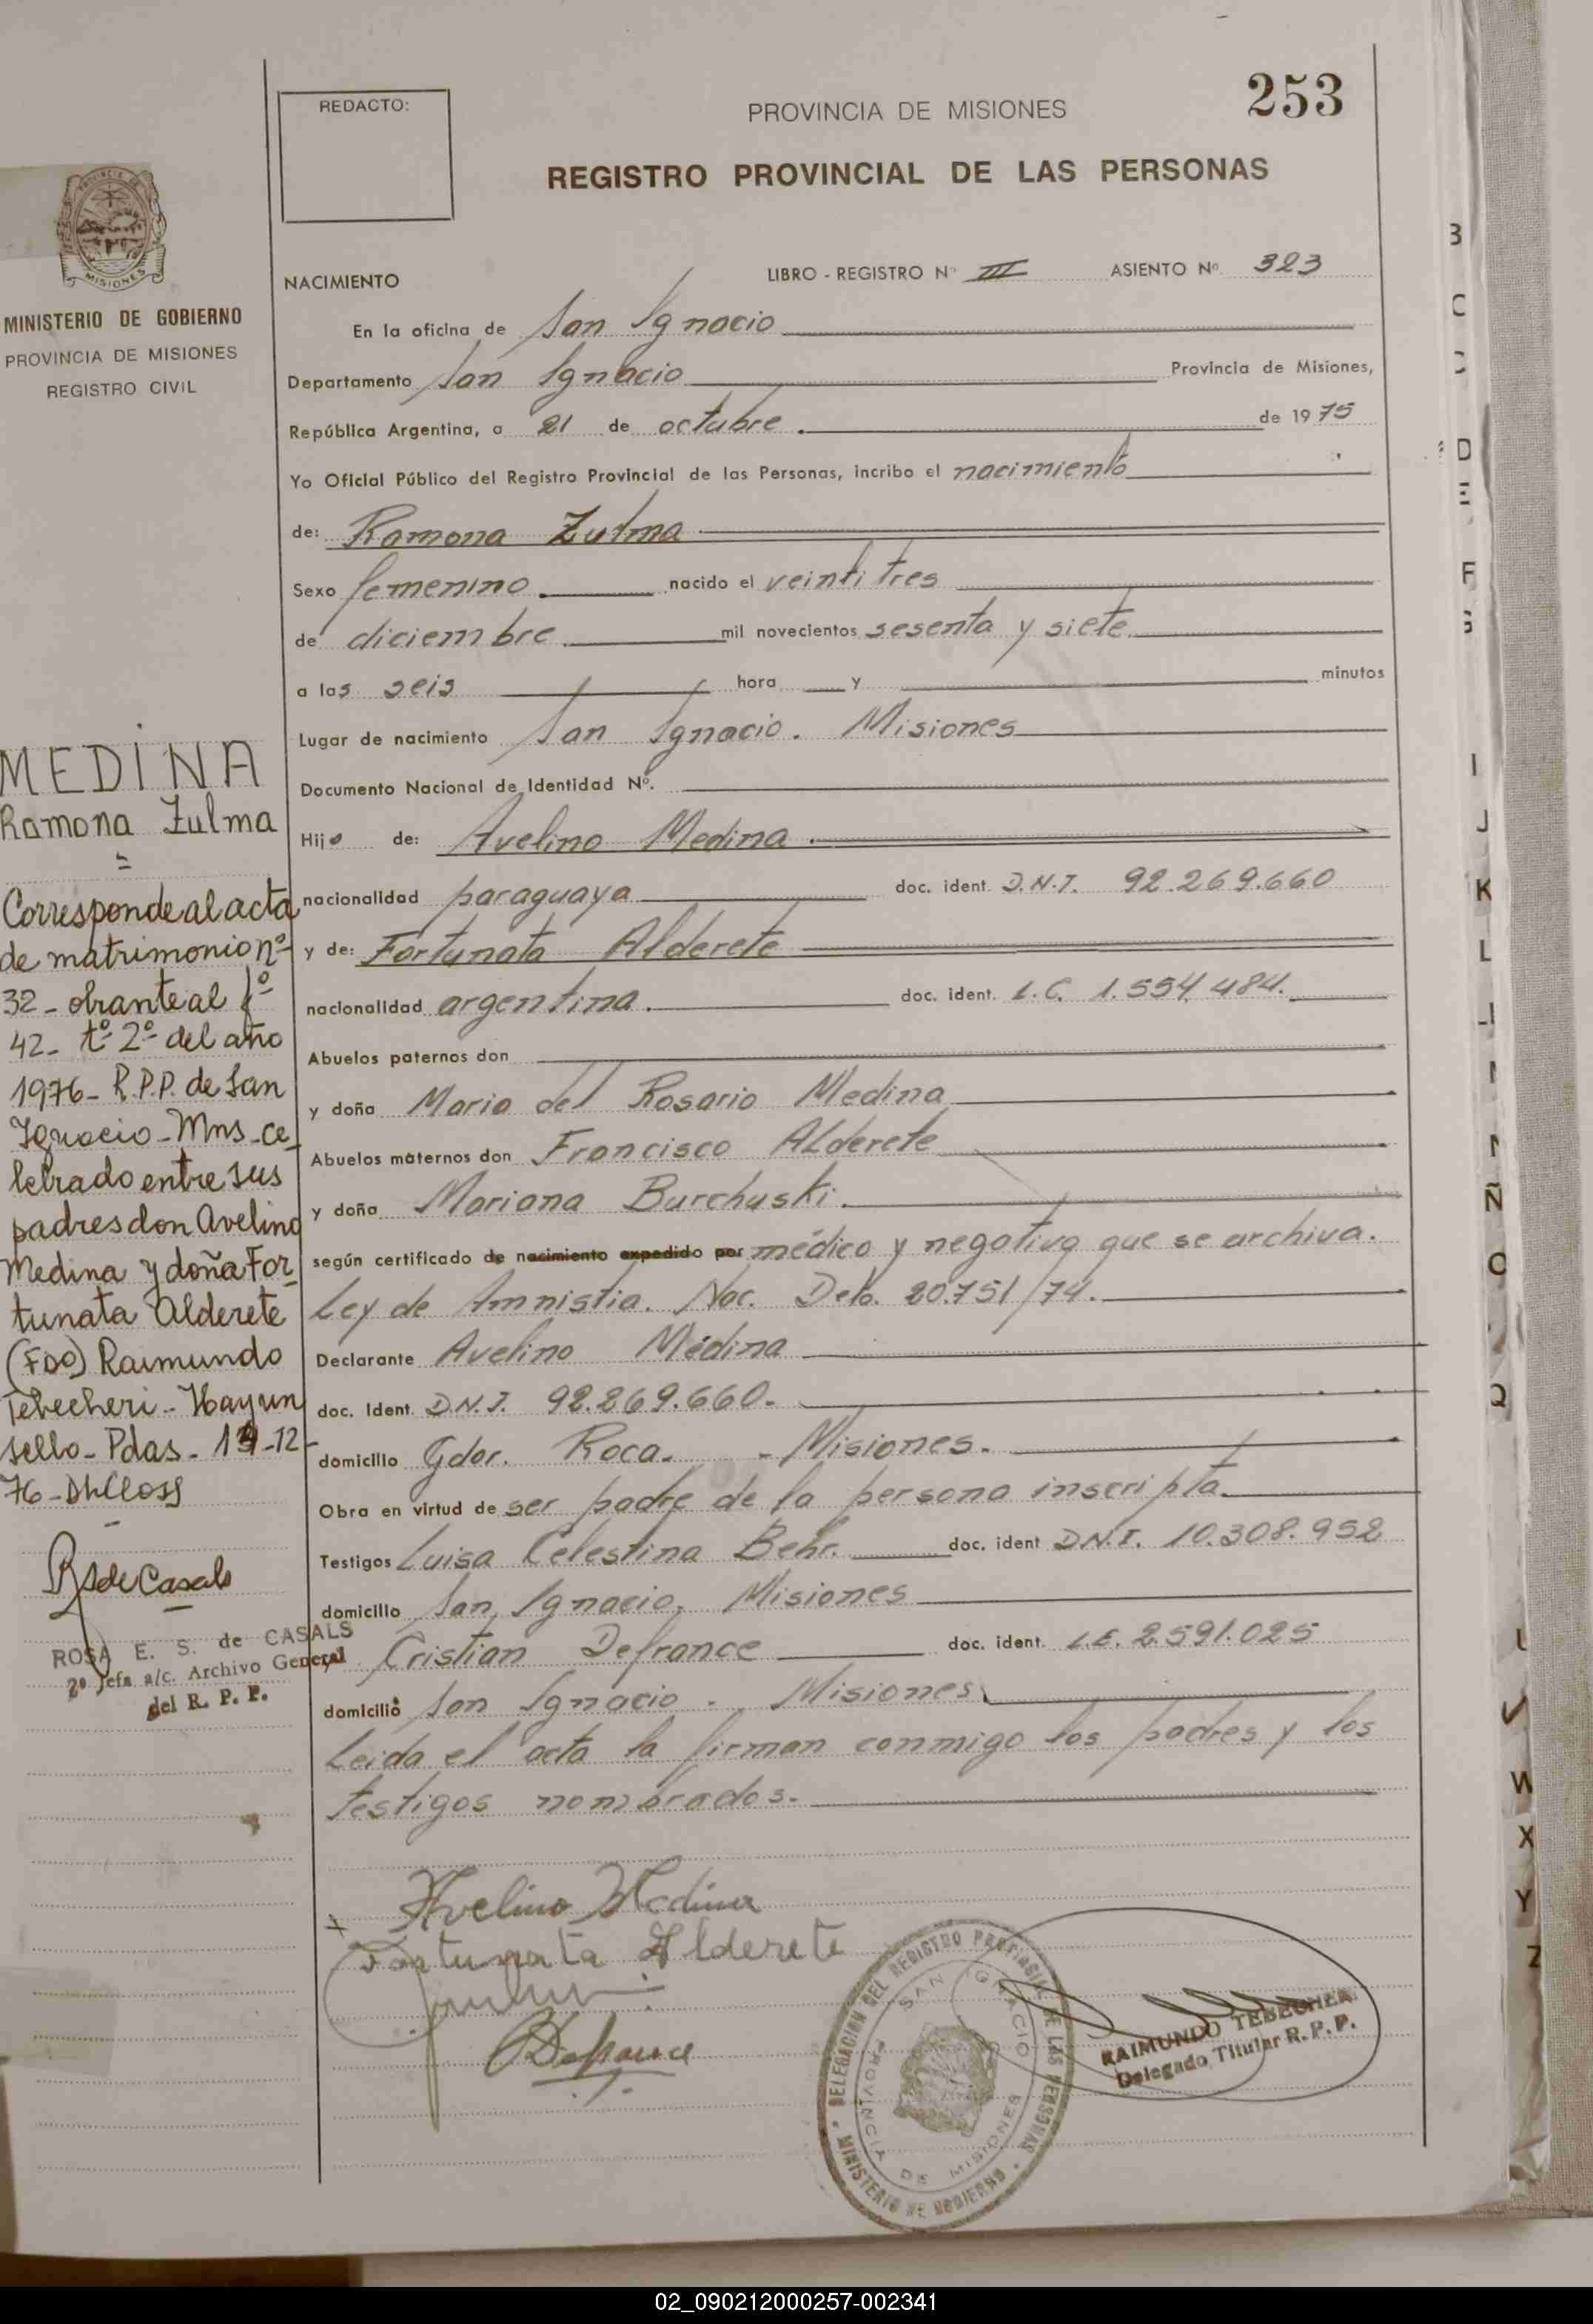 253
REDACTO:
PROVINCIA DE MISIONES
REGISTRO PROVINCIAL DE LAS PERSONAS
MISIONES
MINISTERIO DE GOBIERNO
PROVINCIA DE MISIONES
REGISTRO CIVIL
NACIMIENTO LIBRO - REGISTRO Nº III ASIENTO Nº 323
En la oficina de San Ignacio
Departamento San Ignacio Provincia de Misiones,
República Argentina, a 21 de octubre. de 1975
Yo Oficial Público del Registro Provincial de las Personas, incribo el nacimiento
de: Ramona Zulma
Sexo femenino. nacido el veintitres
de diciembre mil novecientos sesenta y siete
a las seis hora y minutos
Lugar de nacimiento San Ignacio. Misiones
Documento Nacional de Identidad Nº.
Hija de: Avelino Medina.
nacionalidad paraguaya doc. ident. D.N.I. 92.269.660
y de: Fortunata Alderete
nacionalidad argentina. doc. ident. L.C. 1.554.484.
Abuelos paternos don
y doña Maria del Rosario Medina
Abuelos maternos don Francisco Alderete
y doña Mariana Burchuski.
según certificado de nacimiento expedido por médico y negativo que se archiva.
Ley de Amnistia. Nac. Deto. 20.751/74.
Declarante Avelino Medina
doc. Ident. D.N.I. 92.269.660.
domicilio Gdor. Roca. - Misiones.
Obra en virtud de ser padre de la persona inscripta.
Testigos Luisa Celestina Behr. doc. ident D.N.I. 10.308.952
domicilio San Ignacio. Misiones
Cristian Defrance doc. ident. L.E. 2.591.025
domicilio San Ignacio. Misiones
Leida el acta la firman conmigo los padres y los
testigos nombrados.
MEDINA
Ramona Zulma
=
Corresponde al acta
de matrimonio nº
32- obrante al fº
42- tº 2º del año
1976- R.P.P. de San
Ignacio- Mns- ce
lebrado entre sus
padres don Avelino
Medina y doña For
tunata Alderete
(Fdo) Raimundo
Tebecheri- Hay un
sello- Pdas- -12-
76-
RSdeCasals
ROSA E. S. de CASALS
2º Jefa a/c. Archivo General
del R. P. P.
Avelino Medina
Fortunata Alderete
CDefrance
DELEGACION DEL REGISTRO PROVINCIAL DE LAS PERSONAS
SAN IGNACIO
PROVINCIA DE MISIONES
MINISTERIO DE GOBIERNO
RAIMUNDO TEBECHERI
Delegado Titular R.P.P.
B
C
D
E
F
G
I
J
K
L
Ñ
O
Q
W
X
Y
Z
02_090212000257-002341